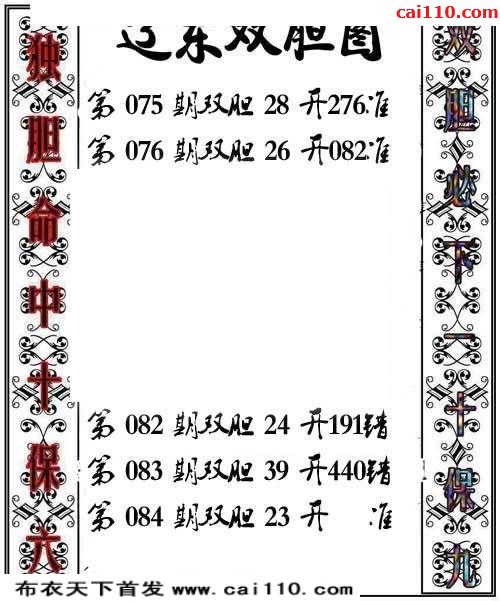 cai110.com
辽东双胆图
第 075 期双胆 28 开276准
第 076 期双胆 26 开082准
第 082 期双胆 24 开191错
第 083 期双胆 39 开440错
第 084 期双胆 23 开 准
独胆命中十保六
双胆必下一十保九
布衣天下首发 www.cai110.com